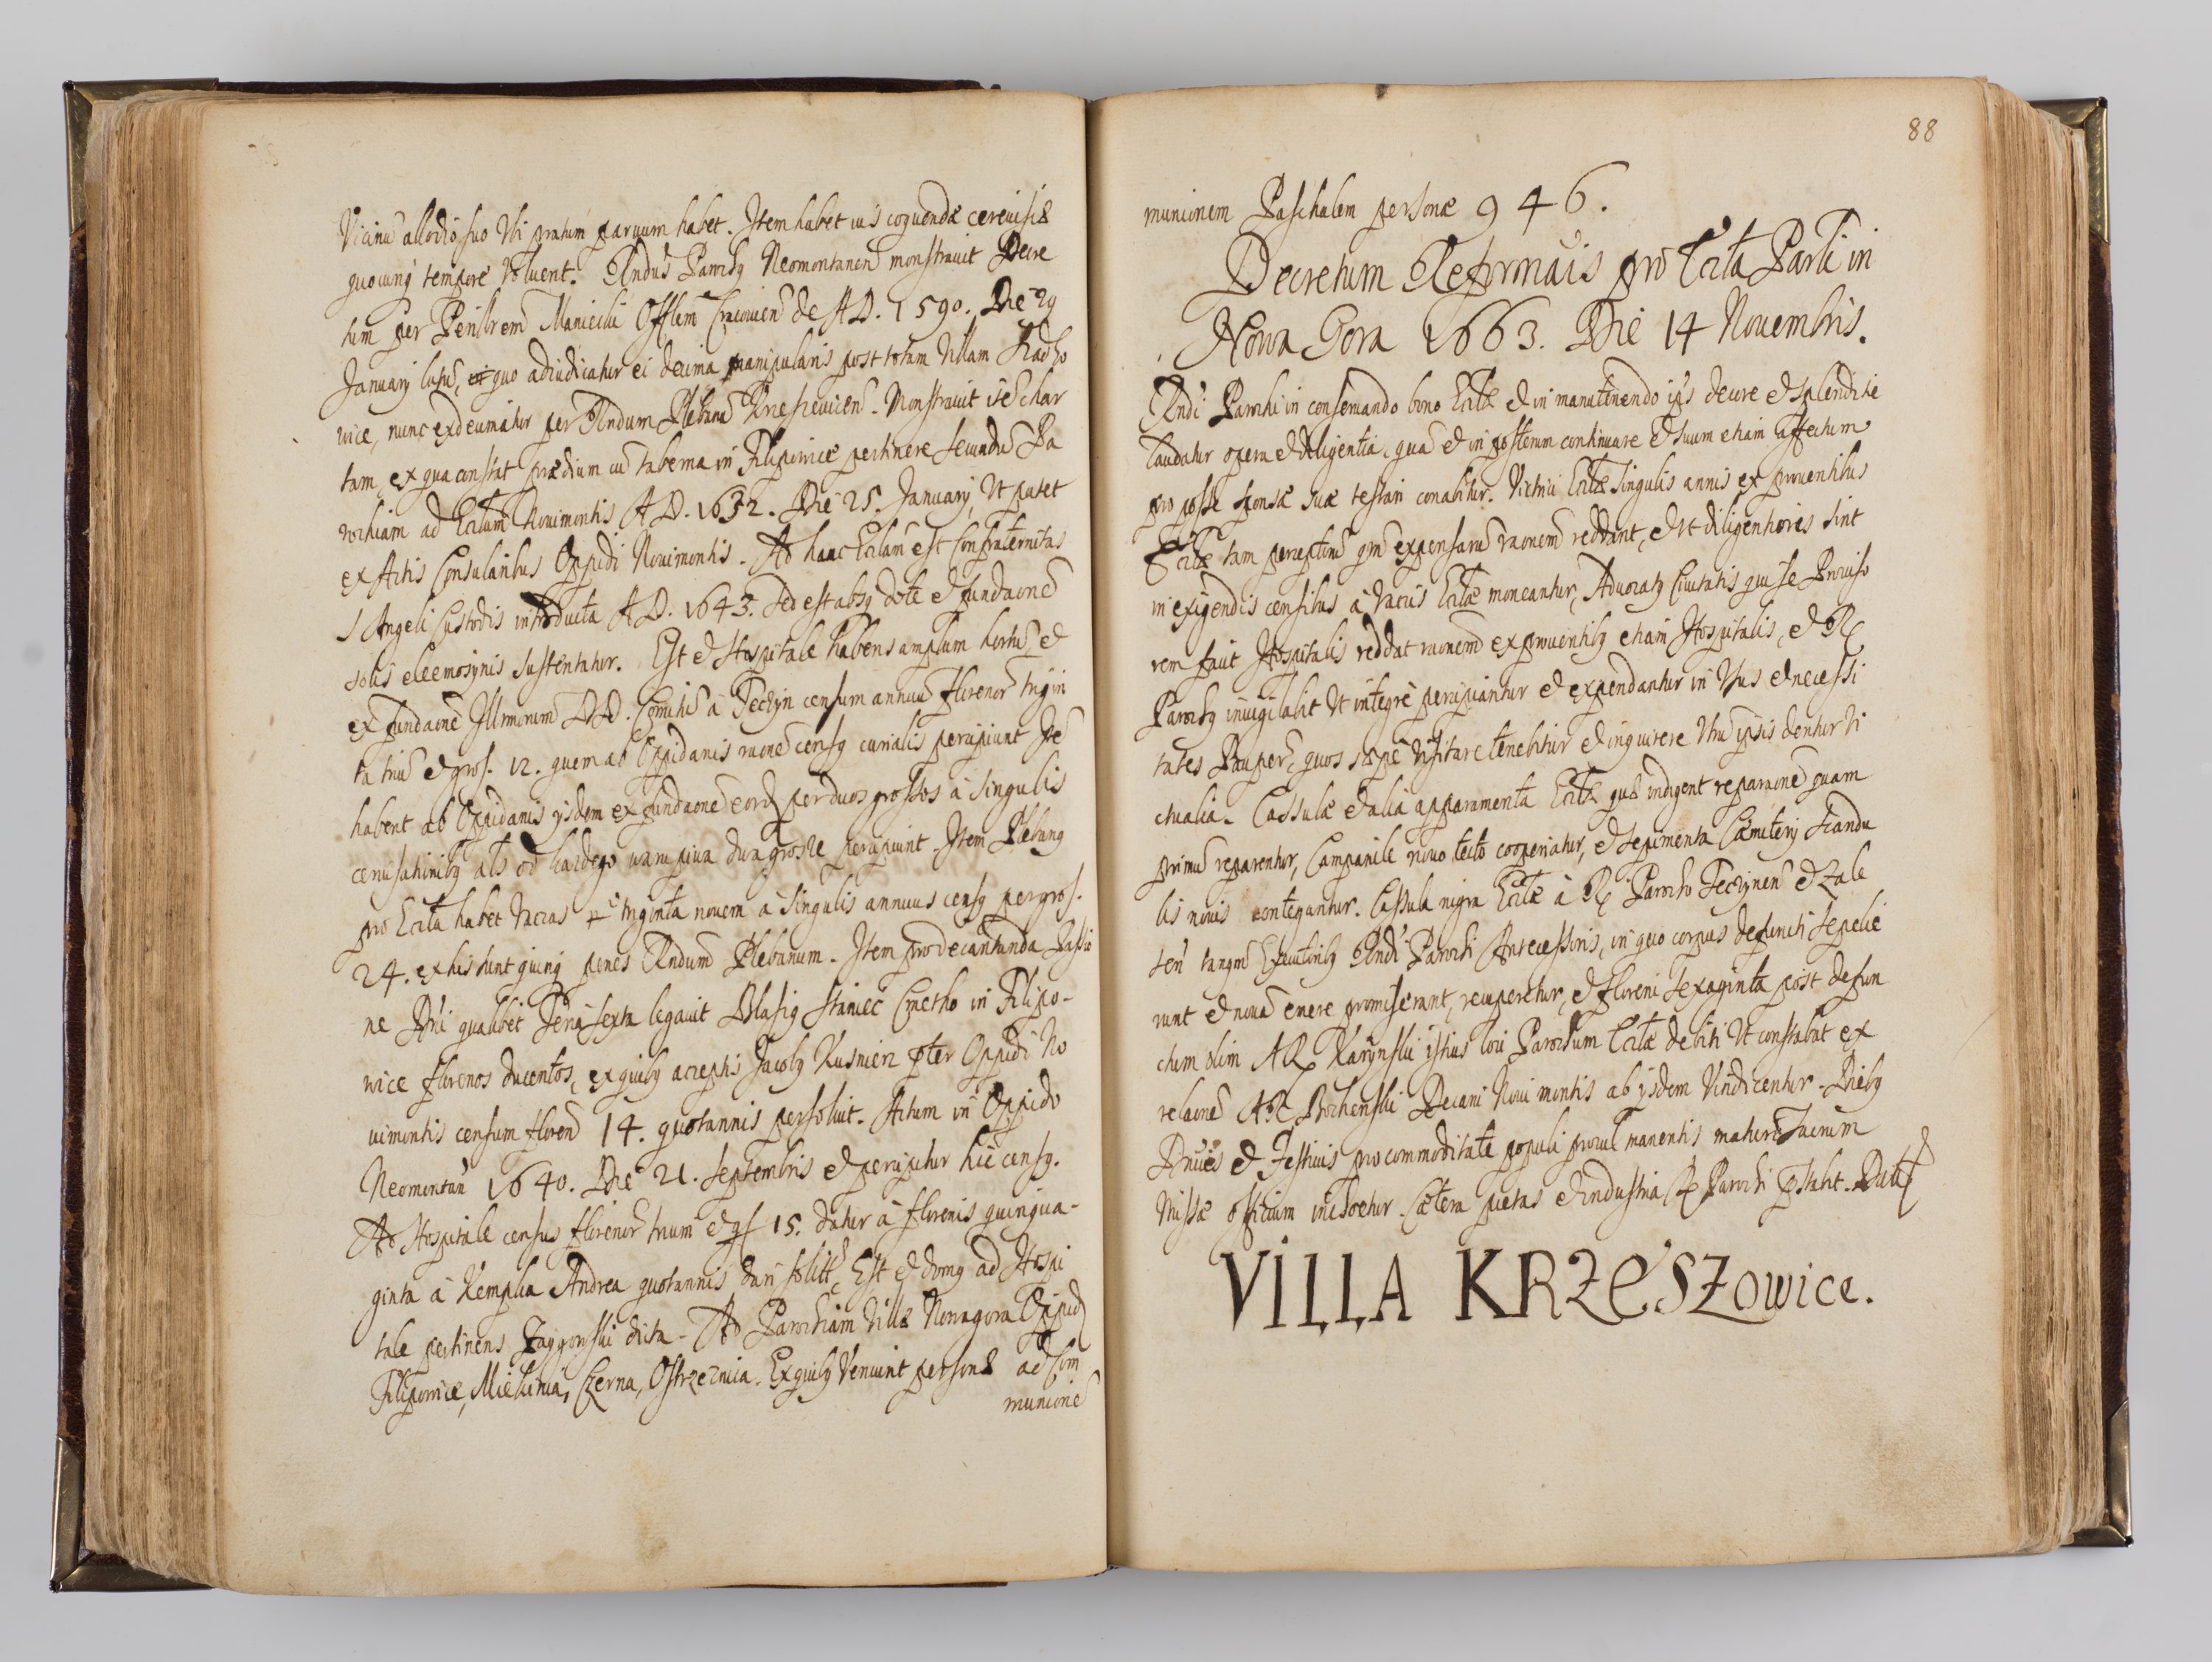 Vicinũ allodio suo Vbi pratum paruum habet. Item habet ius coquendæ cereuisiæ
quocunq tempore voluent. Rndus Parochq Neomontanen monstrauit Decre
tum per Perillrem Maniecki Offlem Cracouien de A D. 1590. Die 29
January latũ, quo adiudicatur ei decima manipularis post totam Villam Radho
wice, nunc exdecimatur per Rndum Plebanũ Kresзouicen. Monstrauit itẽ char
tam, ex qua constat prædium cũ taberna in Filipowice pertinere secundũ Pa
rochiam ad Ecclam Nouimontis A D. 1632. Die 25. January, Vt patet
ex Actis Consularibus Oppidi Nouimontis. Ad hanc Ecclam est Confraternitas
S Angeli Custodis introducta A D. 1643. sed est absq dote et fundaone
solis eleemosynis sustentatur. Est et Hospitale habens amplum hortũ et
ex fundaone Illrmorum DD. Comitũ à Teczyn censum annuũ florenor trigin
ta triũ et gros. 12. quem ab Oppidanis raone censq curialis percipiunt Itẽ
habent ab Oppidanis ysdem ex fundaone eord per duos grossos à singulis
ceruisatinibq als od kazdego warupiwa dwa grosze percipiunt. Item Plebanq
pro Eccla habet Vaccas triginta nouem à singulis annuus censq per gros.
24. ex his sunt quinq penes Rndum Plebanum. Item pro decantanda Passio
ne Dni qualibet Feria sexta legauit Blasiq Staniec Cmetho in Filipo-
wice florenos ducentos, ex quibq acceptis Jacobq Kusnierz pter Oppidi No
uimontis censum floren 14. quotannis persoluit. Actum in Oppido
Neomontan 1640. Die 21. Septembris et percipitur hic censq.
Ad Hospitale census florenor trium et gs 15. datur à florenis quinqua-
ginta à Kempka Andrea quotannis dari solitq, Est et domq ad Hospi
tale pertinens Zaygowski dicta. Ad Parochiam Villæ Nowagora Oppid
Filipowice, Miekinia, Czerna, Ostrzeznica. Ex quibq Veniunt personæ ad Com
munione
88
munionem Paschalem personæ 946.
Decretum Reformaõis pro Eccla Parli in
Nowa Gora 1663. Die 14 Nouembris.
Rndi Parochi in conseruando bono Eccle et in manutinendo ips decore et splendore
laudatur opera et diligentia, quã et in posterum continuare et suum etiam affectum
pro posse sponsæ suæ testari conabitur. Vitrici Ecclæ singulis annis ex prouentibus
Ecclæ tam perceptorũ qm expensarũ raonem reddant, et Vt diligentiores sint
in exigendis censibus à Vaccis Ecclæ moneantur, Aduocatq Ciuitatis qui se Prouiso
rem facit Hospitalis reddat raonem ex prouentibq etiam Hospitalis, et R
Parochq inuigilabit Vt integrè percipiantur et expendantur in Vus et necessi
tates Pauper, quos sæpè Visitare tenebitur et inquirere Vtrũ ipsis dentur Vi
ctualia. Cassulæ et alia apparamenta Ecclæ quæ indigent reparaone quam
primũ reparentur, Campanile nouo tecto cooperiatur, et sepimenta Cæmitery scandu
lis nouis contegantur. Cassula nigra Ecclæ à R Parocho Teczynen et Zale
sen tanqm Executoribq Rndi Parochi Antecessoris, in quo corpus defuncti sepelie
runt et nouã emere promiserant, recuperetur, et floreni sexaginta post defun
ctum olim AR Karynski istius loci Parochum Ecclæ debiti Vt constabat ex
relaone AR Bochenski Decani Noui montis ab ysdem Vindicentur. Diebq
Dnicis et Festiuis pro commoditate populi procul manentis maturè sacrum
Missæ officium inchoetur. Cætera pietas et industria R Parochi pstabit. Datt
VILLA KRZESZOWICE.